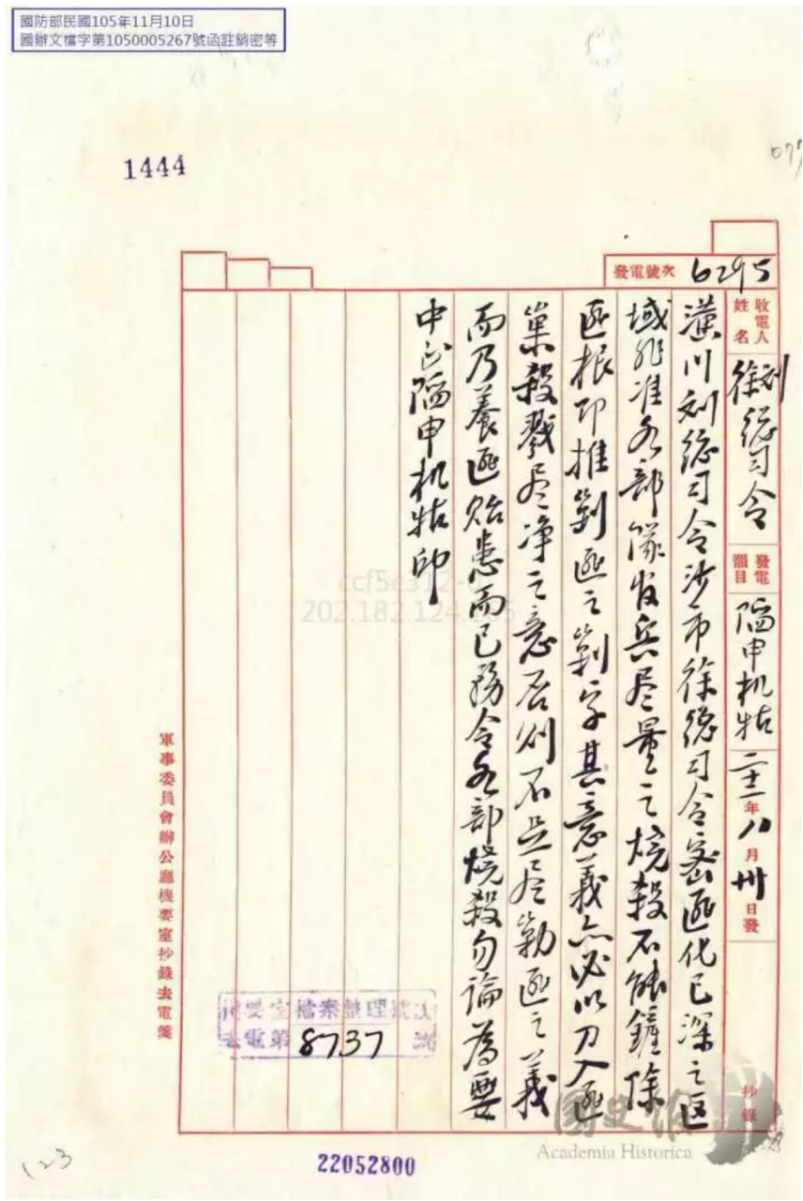 國防部民國105年11月10日
國辦文檔字第1050005267號函註銷密等
1444
077
發電號次 6295
收電人姓名 刘徐總司令 發電韻目 陷申机牯 二十一年八月卅日發 抄錄
潢川刘總司令沙市徐總司令密匪化已深之区
域非准各部隊官兵尽量之燒殺不能鏟除
匪根即推剿匪之剿字其意義亦必以刀入匪
巢殺戮尽净之意否则不足尽剿匪之義
而乃養匪貽患而已務令各部燒殺勿論為要
中正陷申机牯印
軍事委員會辦公廳機要室抄錄去電箋
機要室檔案整理
去電第 8737 號
202.182.124
國史館
Academia Historica
22052800
123